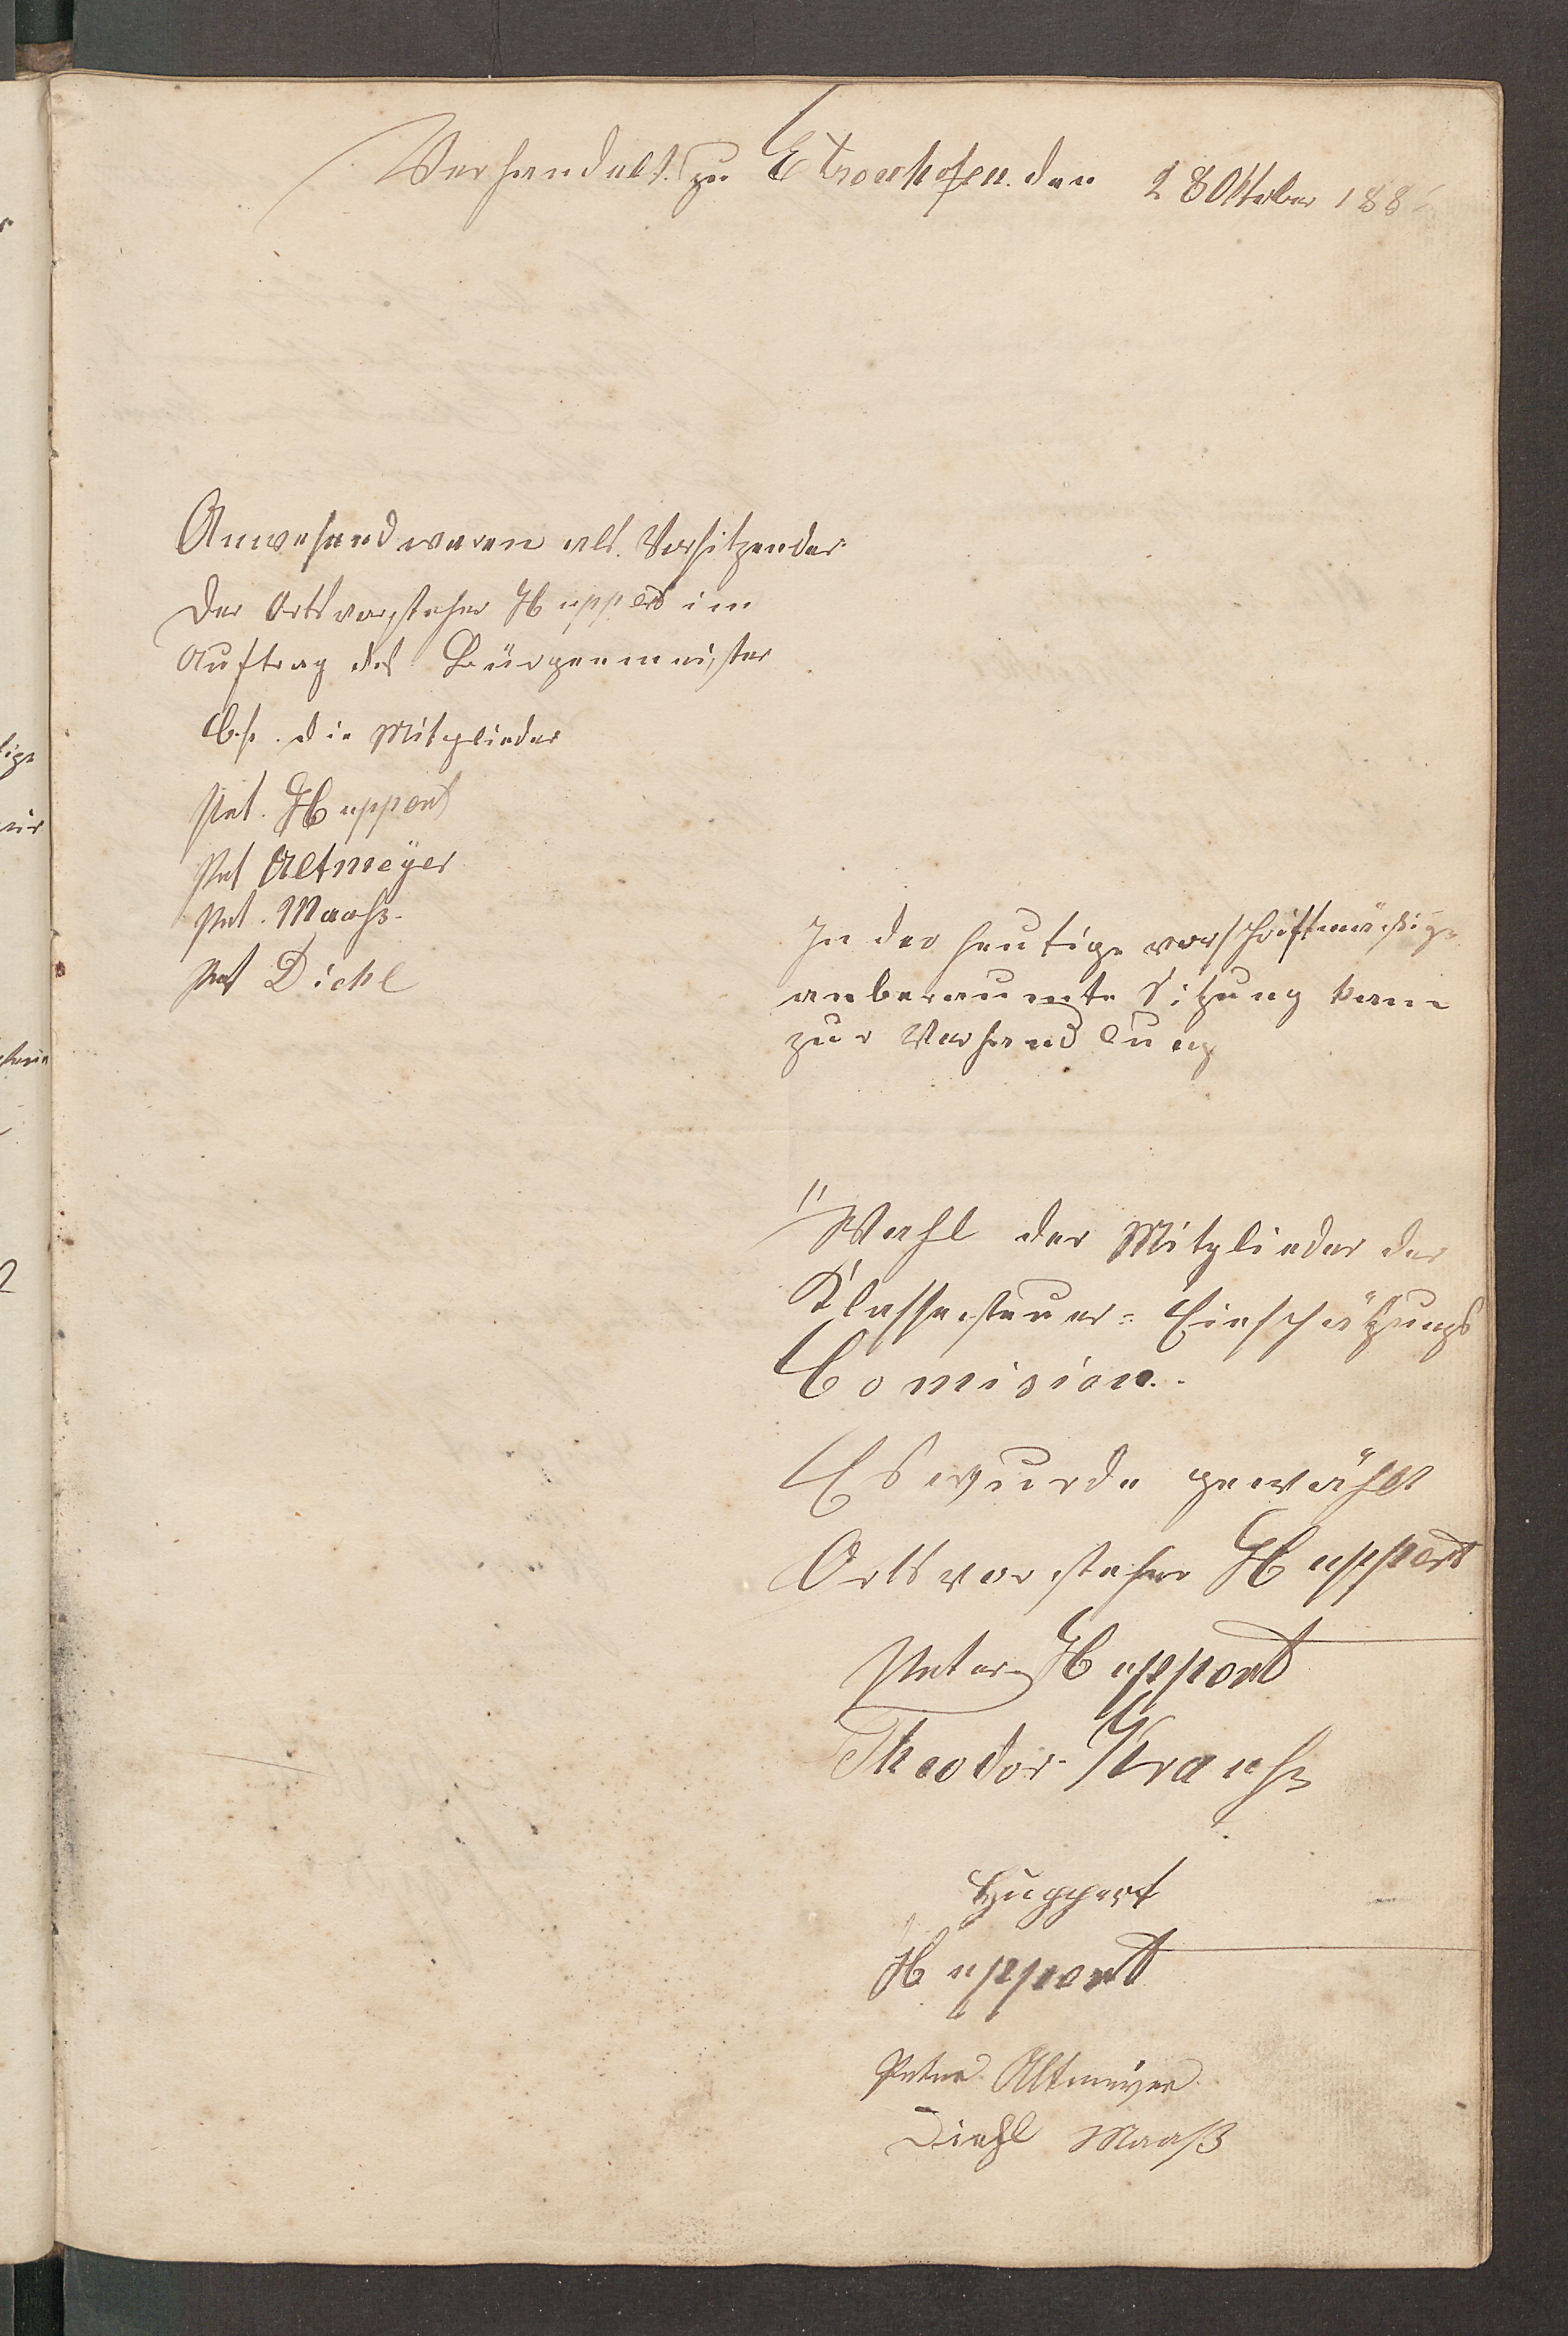 Verhandelt zu Etzenhofen den 28 Oktober 188
Anwesend waren als Vorsitzender
Der Ortsvorsteher Huppert im
Auftrag des Bürgenmeister
b.s. die Mitglieder
Pet. Huppert
Pet Altmeÿer
Pet. Maaß.
Pet Diehl
In der heutige vorschriftmäsige
anberaumte Sitzung kam
zur Verhandlung
1/ Wahl der Mitglieder der
Klassesteuer= Einschätzungs
Comision.
Es wurde gewählt
Ortsvorsteher Huppert
Peter Huppert
Theodor Krauß
Huppert
Huppert
Peter Altmeyer
Diehl Maaß